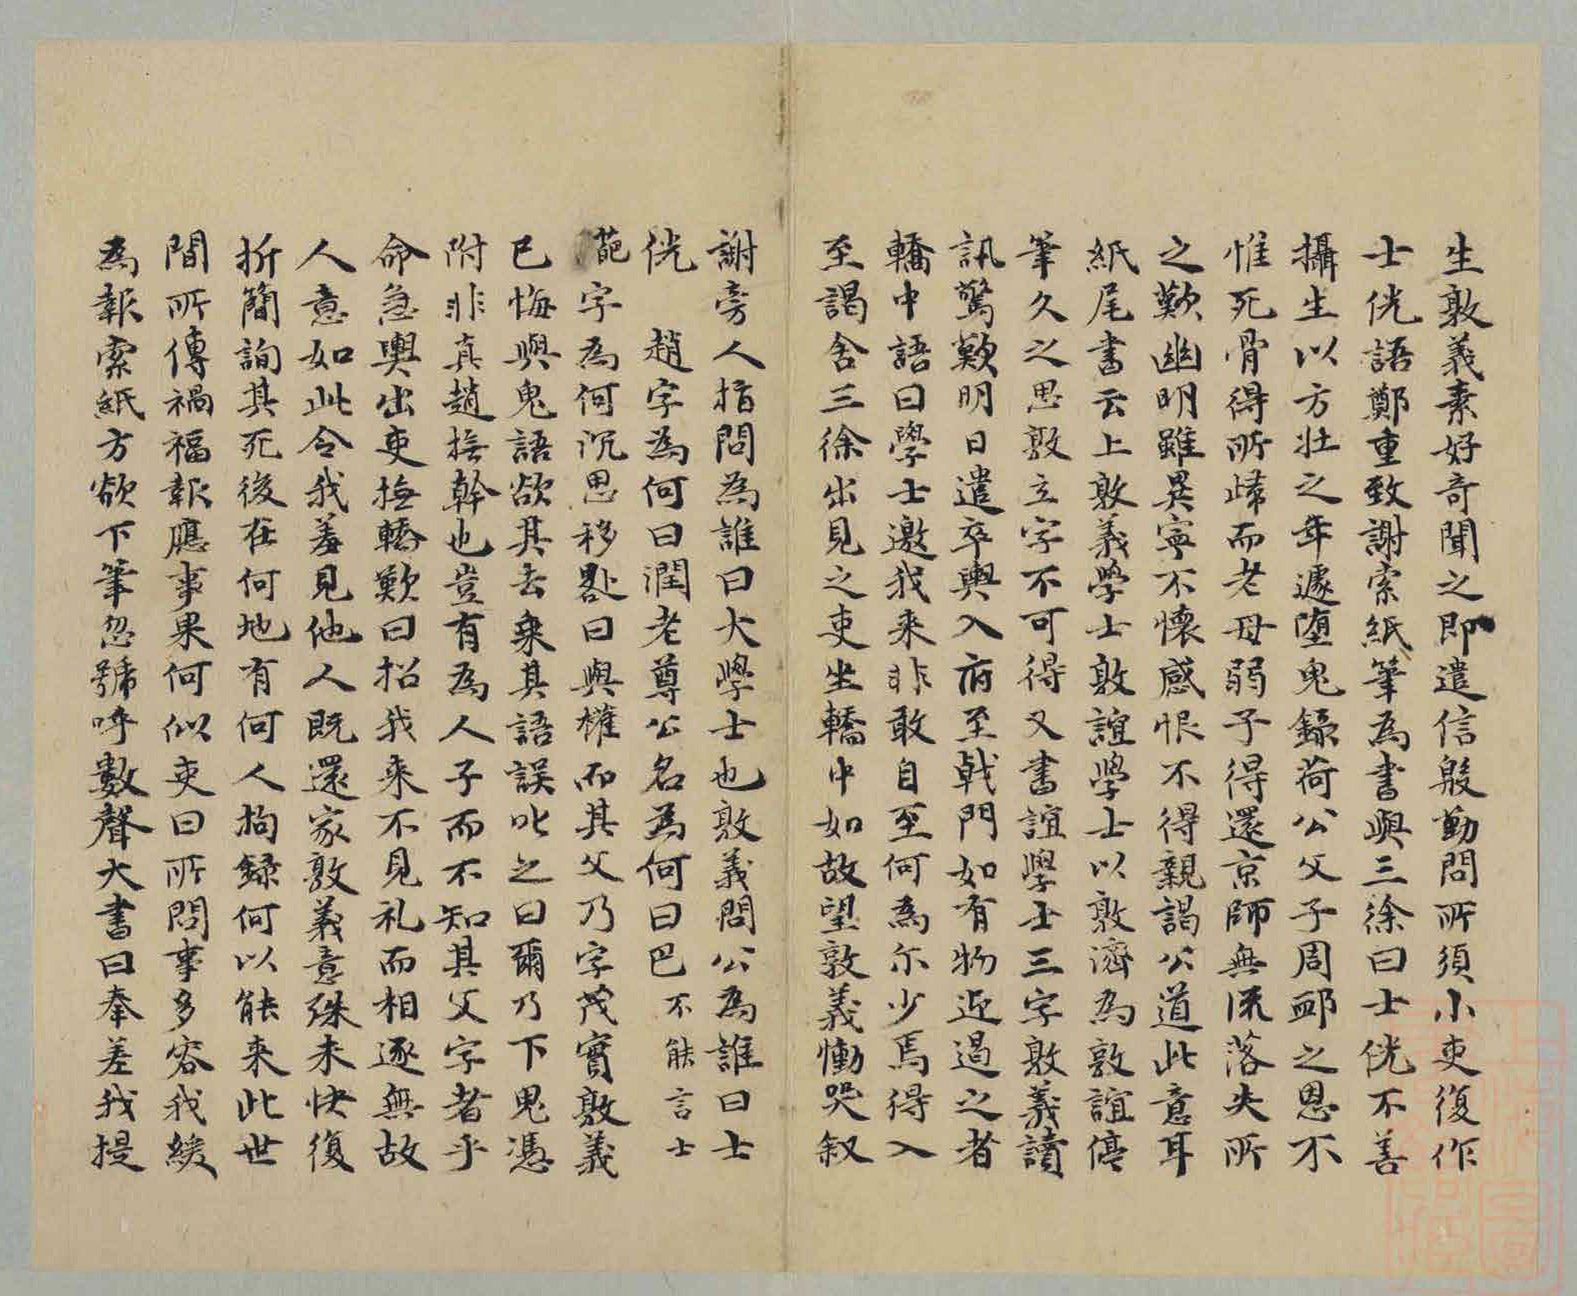 生敦義素好奇聞之即遣信殷勤問所須小吏復作
士侊語鄭重致謝索紙筆為書與三徐曰士侊不善
攝生以方壯之年遽堕鬼錄荷公父子周卹之恩不
惟死骨得所歸而老母弱子得還京師無流落失所
之歎幽明雖異寧不懷感恨不得親謁公道此意耳
紙尾書云上敦義學士敦誼學士以敦濟為敦誼停
筆久之思敦立字不可得又書誼學士三字敦義讀
訊驚歎明日遣卒輿入府至戟門如有物迎過之者
轎中語曰學士邀我来非敢自至何為尓少焉得入
至謁舍三徐出見之吏坐轎中如故望敦義慟哭叙
謝旁人指問為誰曰大學士也敦義問公為誰曰士
侊　趙字為何曰潤老尊公名為何曰巴不能言士
葩字為何沉思移晷曰與權而其父乃字茂實敦義
已悔與鬼語欲其去乗其語誤叱之曰爾乃下鬼憑
附非真趙撫幹也豈有為人子而不知其父字者乎
命急輿出吏撫轎歎曰招我来不見礼而相逐無故
人意如此令我羞見他人既還家敦義意殊未快復
折簡詢其死後在何地有何人拘錄何以能来此世
間所傳禍福報應事果何似吏曰所問事多容我緩
為報索紙方欲下筆忽號呼數聲大書曰奉差我提